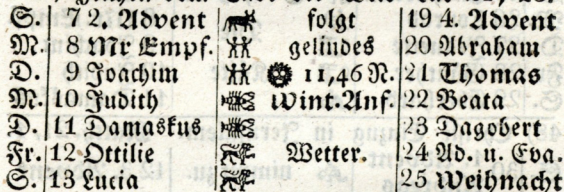 S. 7 2. Advent folgt 19 4. Advent
M. 8 Mr Empf. gelindes 20 Abraham
D. 9 Joachim 11,46 N. 21 Thomas
M. 10 Judith Wint.Anf. 22 Beata
D 11 Damaskus 23 Dagobert
Fr. 12 Ottilie Wetter. 24 Ad. u. Eva.
S. 13 Lucia 25 Weihnacht